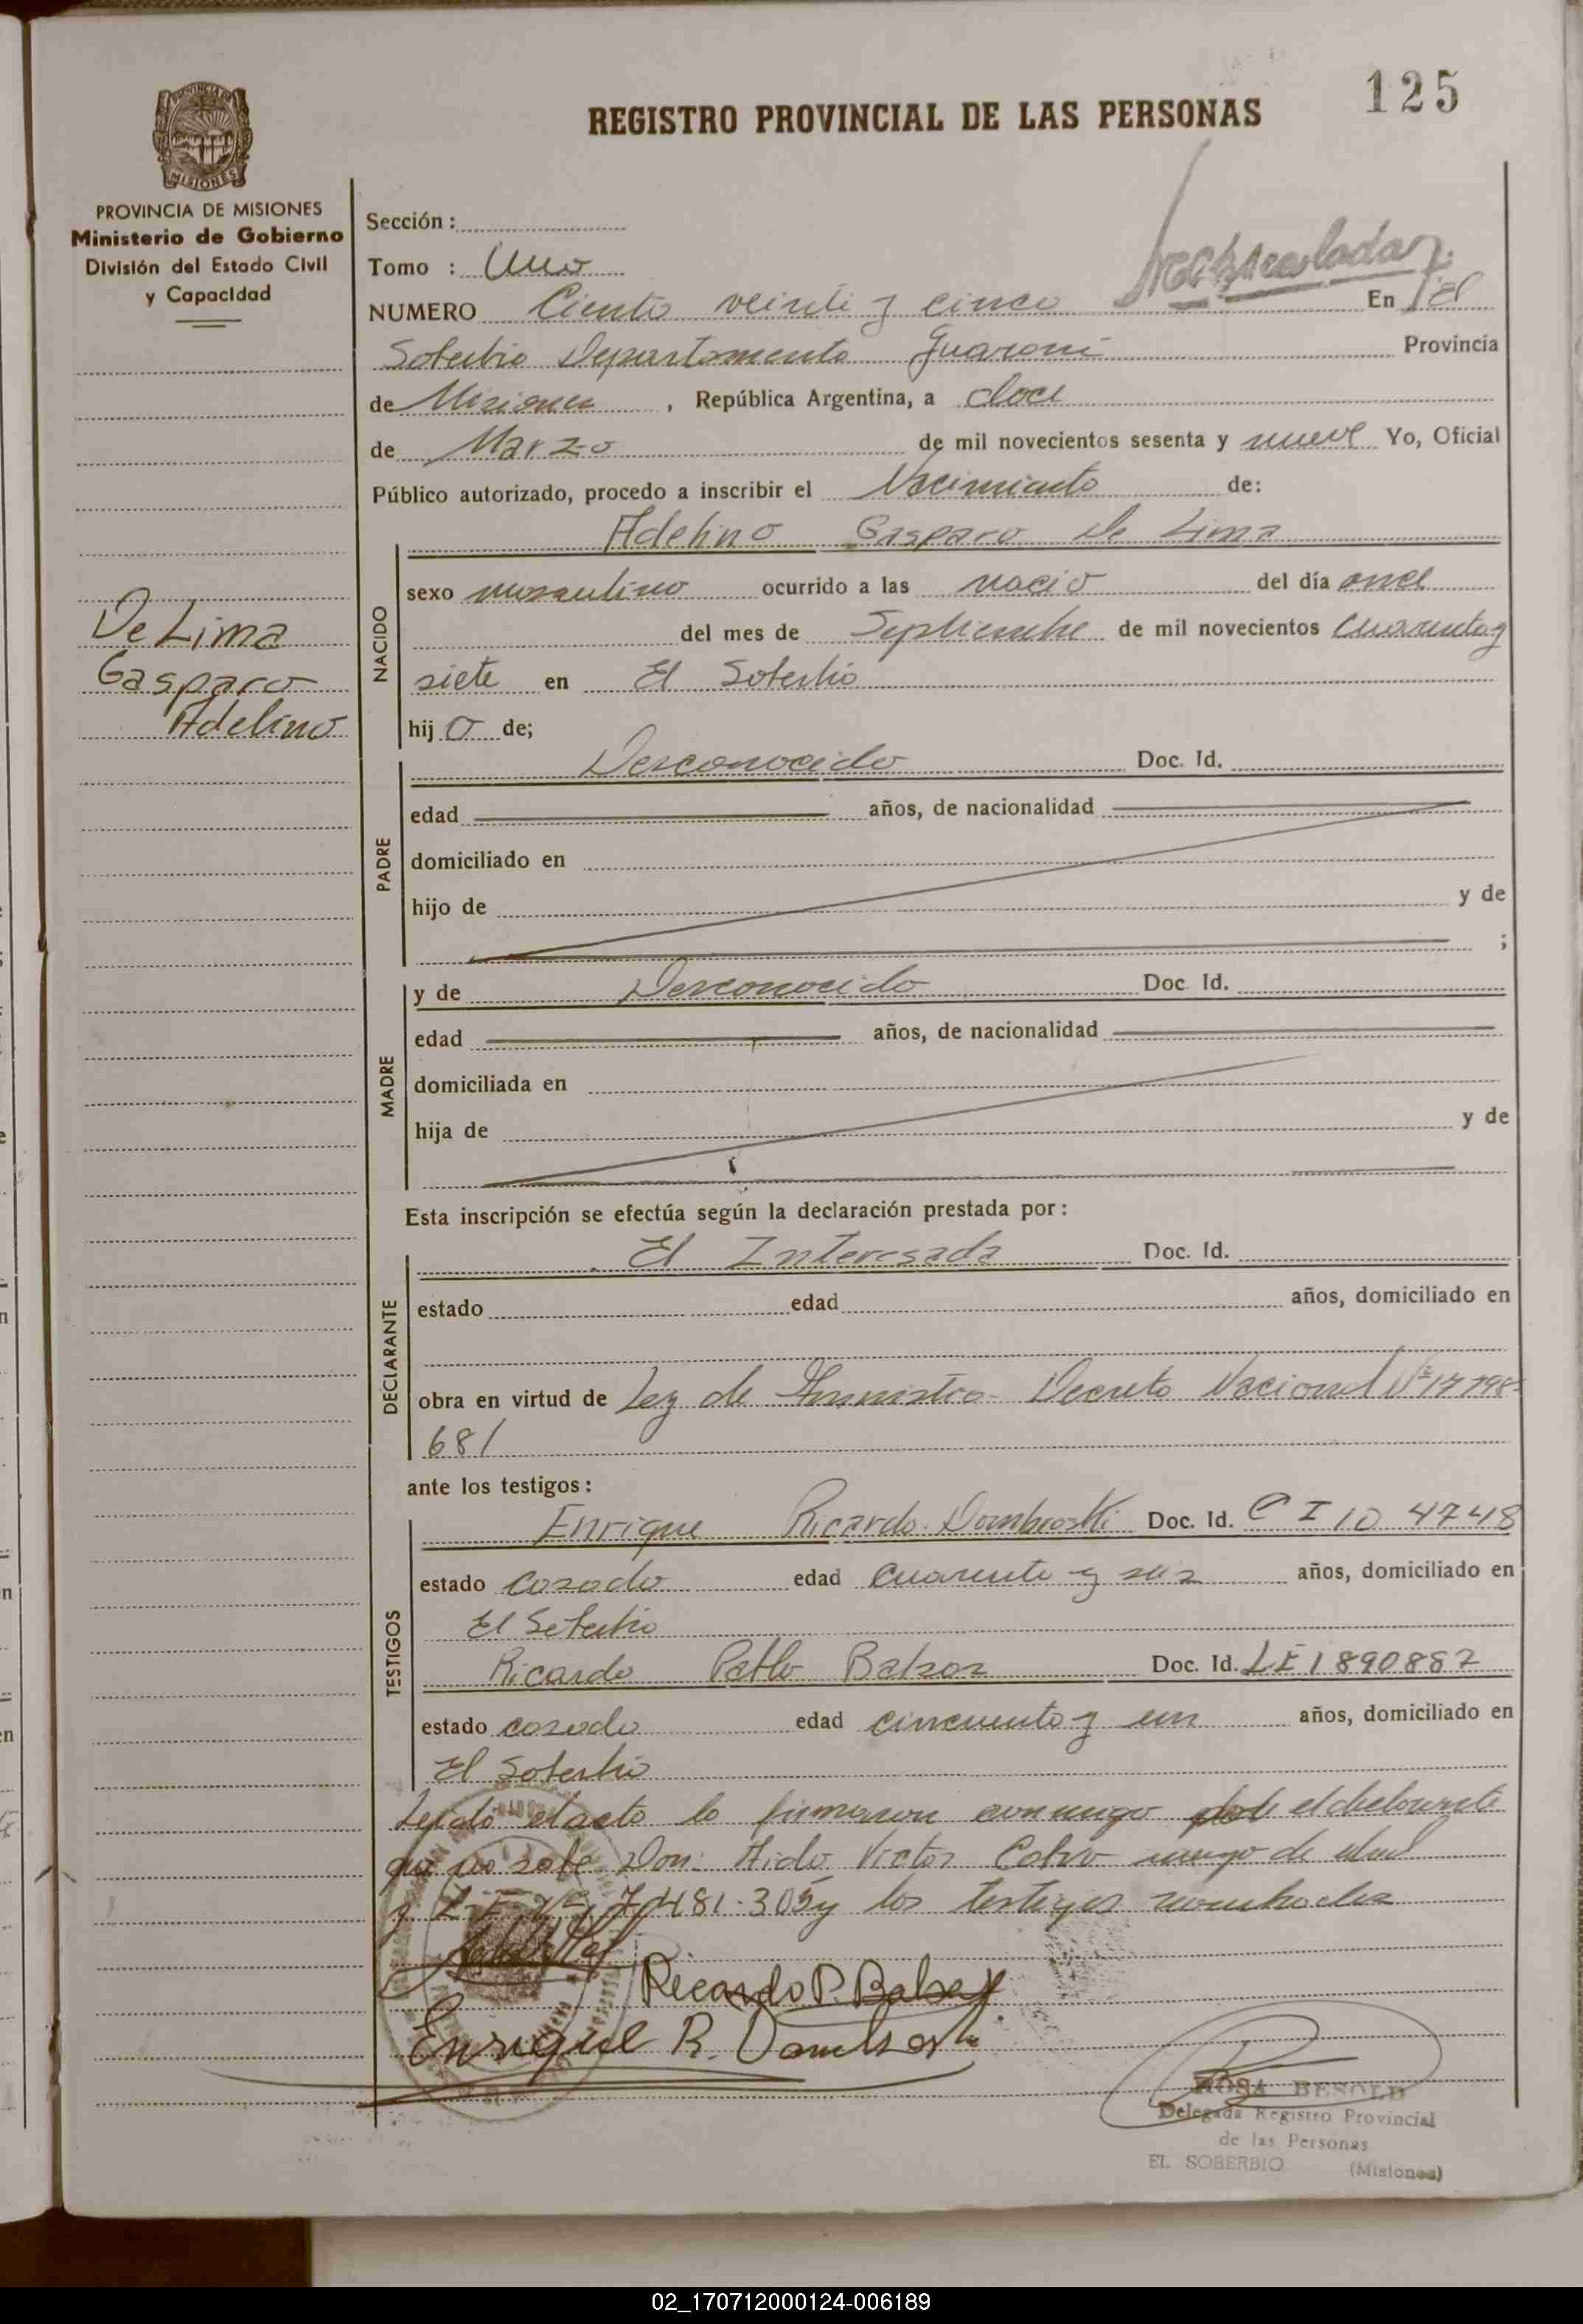 125
REGISTRO PROVINCIAL DE LAS PERSONAS
PROVINCIA DE
MISIONES
PROVINCIA DE MISIONES
Ministerio de Gobierno
División del Estado Civil
y Capacidad
Sección :
Tomo : Uno
NUMERO Ciento veinti y cinco En El
Soberbio Departamento Guarani Provincia
de Misiones , República Argentina, a doce
de Marzo de mil novecientos sesenta y nueve Yo, Oficial
Público autorizado, procedo a inscribir el Nacimiento de:
De Lima
Gasparo
Adelino
NACIDO
Adelino Gasparo De Lima
sexo masculino ocurrido a las nació del día once
del mes de Septiembre de mil novecientos cuarenta y
siete en El Soberbio
hij o de;
PADRE
Desconocido Doc. Id.
edad años, de nacionalidad
domiciliado en
hijo de y de
;
MADRE
y de Desconocido Doc. Id.
edad años, de nacionalidad
domiciliada en
hija de y de
Esta inscripción se efectúa según la declaración prestada por :
DECLARANTE
El Interesada Doc. Id.
estado edad años, domiciliado en
obra en virtud de Ley de Amnistia - Decreto Nacional Nº
681
ante los testigos :
TESTIGOS
Enrique Ricardo Dombroski Doc. Id. C I 10 4748
estado casado edad cuarenta y seis años, domiciliado en
El Soberbio
Ricardo Pablo Doc. Id. LE 1890887
estado casado edad cincuenta y un años, domiciliado en
El Soberbio
Leido el acto lo firmaron conmigo el declarante
que no sabe Don: Aido Victor mayo de edad
y L-E-Nº 7.481.305 y los testigos nombrados
Ricardo P.
Enrique R.
ROSA BESOLD
Delegada Registro Provincial
de las Personas
EL SOBERBIO (Misiones)
02_170712000124-006189